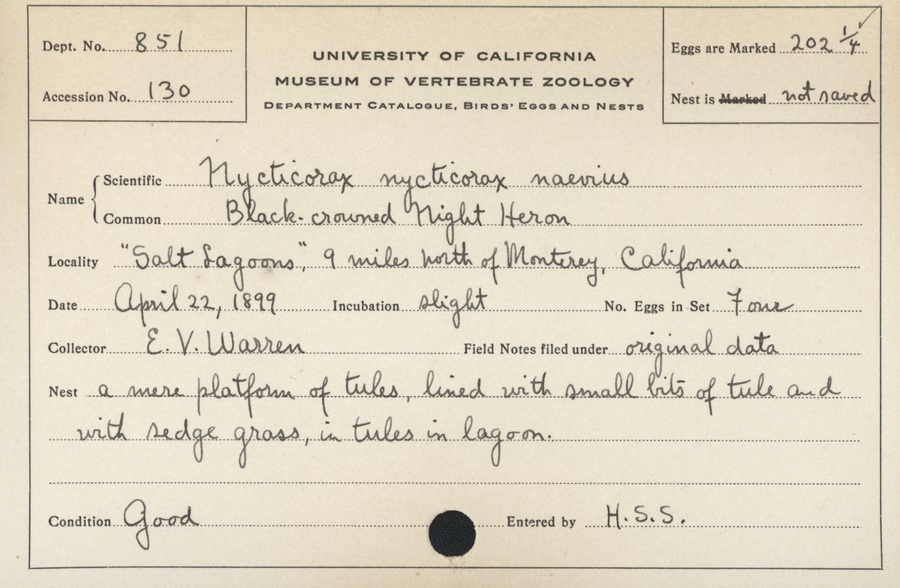 Dept. No. 851
Accession No. 130
UNIVERSITY OF CALIFORNIA
MUSEUM OF VERTEBRATE ZOOLOGY
DEPARTMENT CATALOGUE, BIRDS' EGGS AND NESTS
Eggs are Marked 202 1/4
Nest is Marked not saved
Name
Scientific Nycticorax nycticorax naevius
Common Black-crowned Night Heron
Locality "Salt Lagoons", 9 miles north of Monterey, California
Date April 22, 1899 Incubation slight No. Eggs in Set Four
Collector E. V. Warren Field Notes filed under original data
Nest a mere platform of tules, lined with small bits of tule and
with sedge grass, in tules in lagoon.
Condition Good Entered by H.S.S.